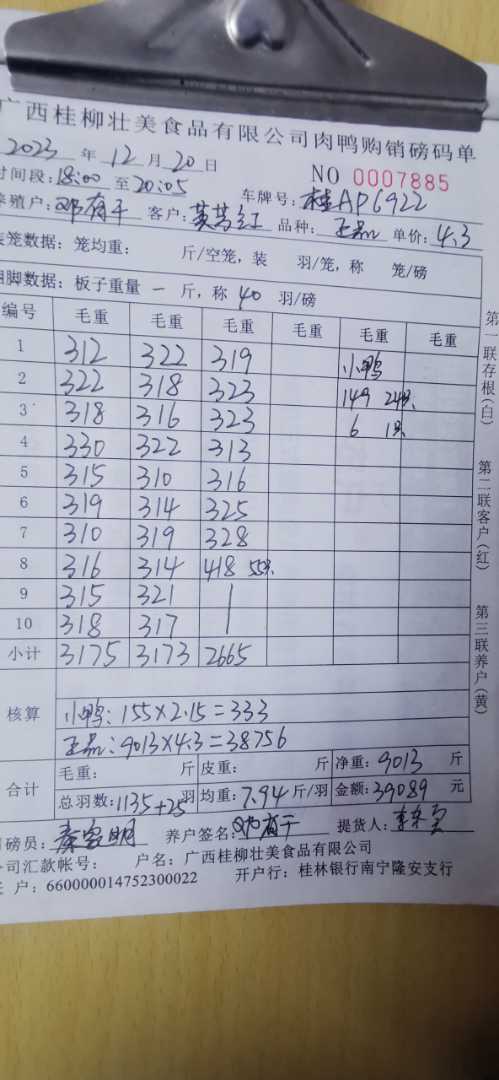 广西桂柳壮美食品有限公司肉鸭购销磅码单
2023 年 12 月 20 日 NO 0007885
时间段:18:00 至 20:05 车牌号:桂AP6922
养殖户:邓有干 客户: 品种:正品 单价:4.3
笼数据:笼均重: 斤/空笼,装 羽/笼,称 笼/磅
脚数据:板子重量 一 斤,称 40 羽/磅
编号 毛重 毛重 毛重 毛重 毛重 毛重
1 312 322 319 小鸭
2 322 318 323 149 24只
3 318 316 323 6 1只
4 330 322 313
5 315 310 316
6 319 314 325
7 310 319 328
8 316 314 418 55只
9 315 321
10 318 317
小计 3175 3173 2665
核算 小鸭:155×2.15=333
正品:9013×4.3=38756
合计 毛重: 斤 皮重: 斤 净重:9013 斤
总羽数:1135+25 羽 均重:7.94 斤/羽 金额:39089 元
磅员: 养户签名:邓有干 提货人:
公司汇款帐号: 户名:广西桂柳壮美食品有限公司
户:660000014752300022 开户行:桂林银行南宁隆安支行
第一联存根(白)
第二联客户(红)
第三联养户(黄)